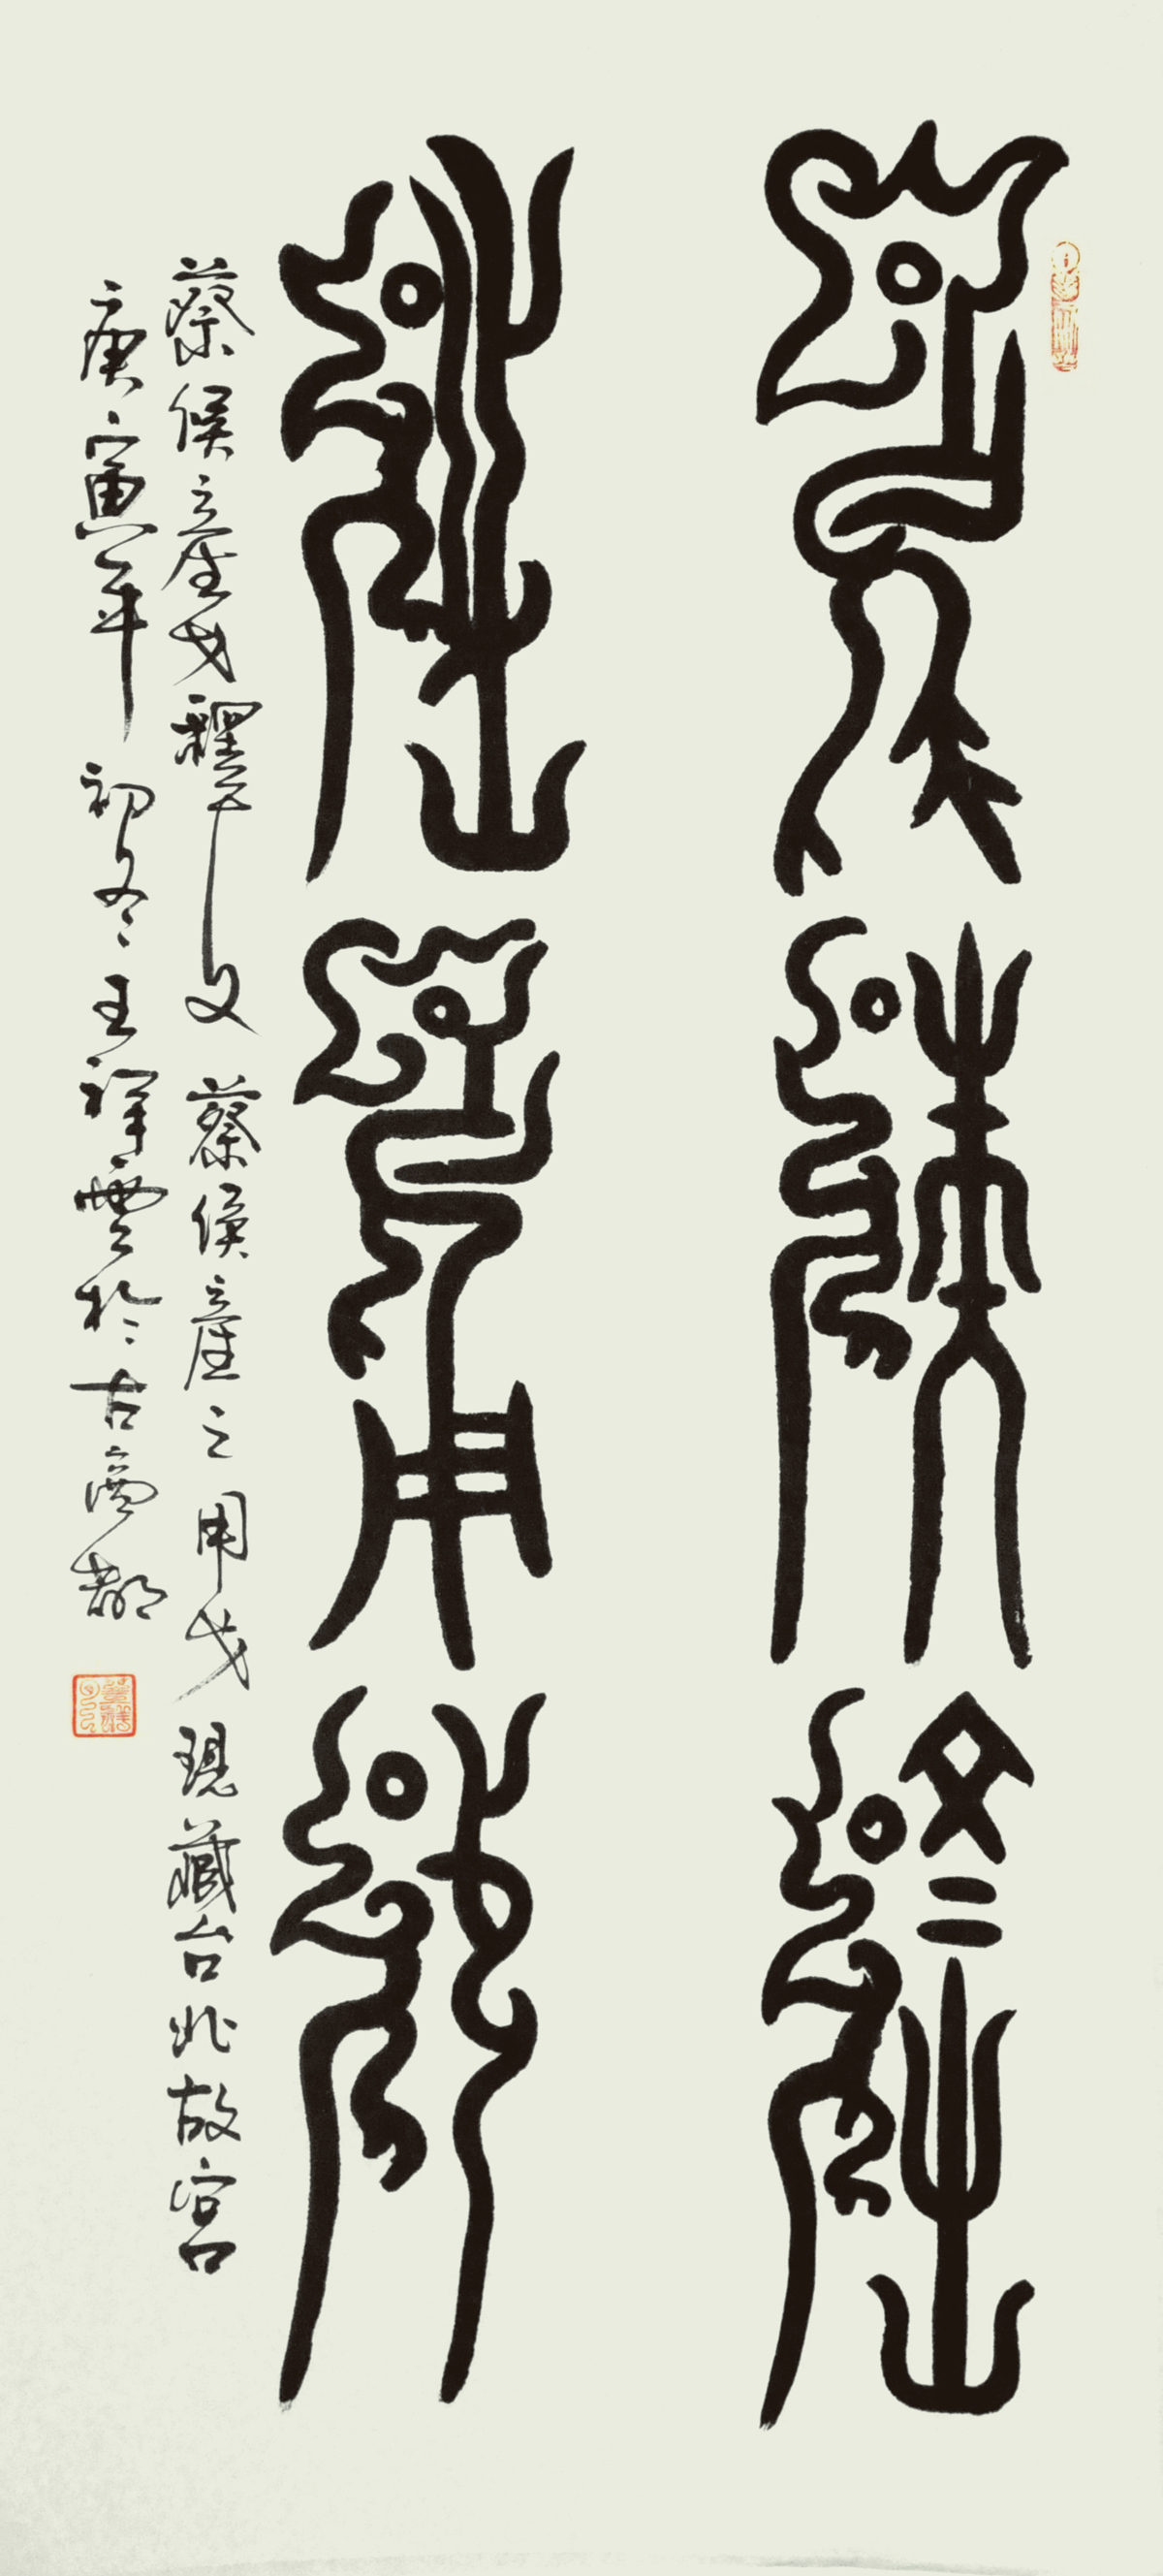 侯蔡產
之用戈
蔡侯產戈釋文 蔡侯產之用戈 現藏台北故宮
庚寅年初冬王祥雲於古商都